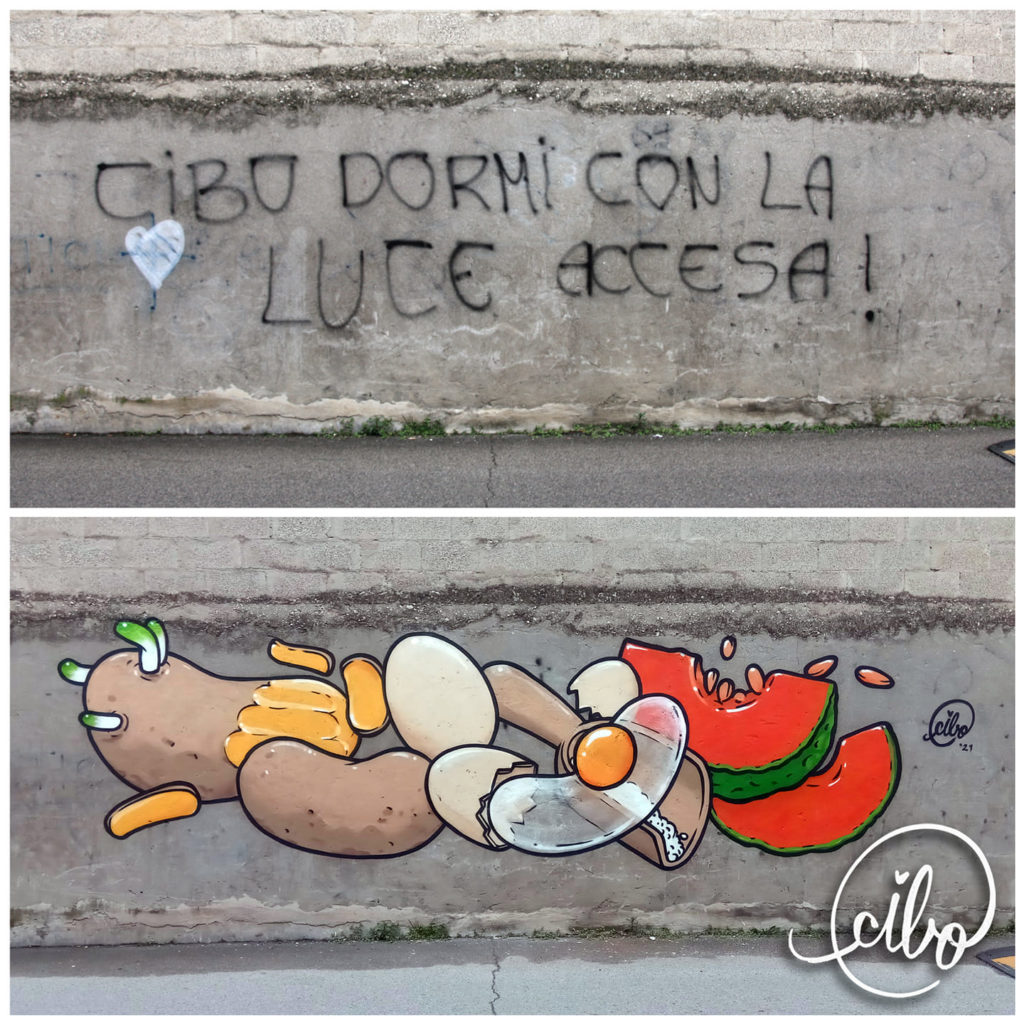 CIBO DORMI CON LA
LUCE ACCESA!
cibo
'21
cibo